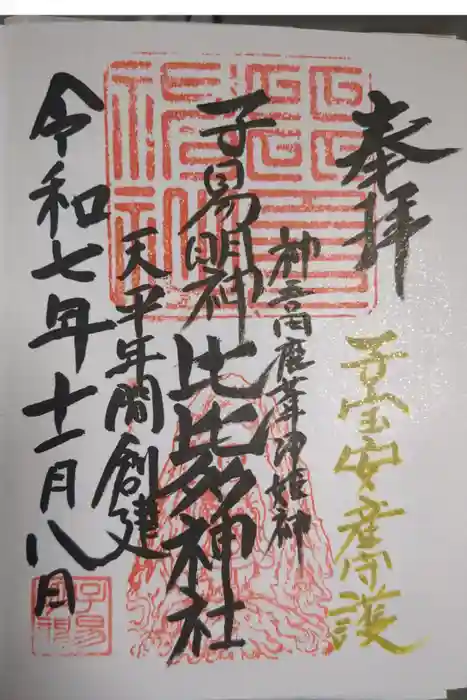 奉拝
子宝安産守護
神吾高鹿葦津姫神
子易明神
比比多神社
天平年間創建
令和七年十一月八日
子易